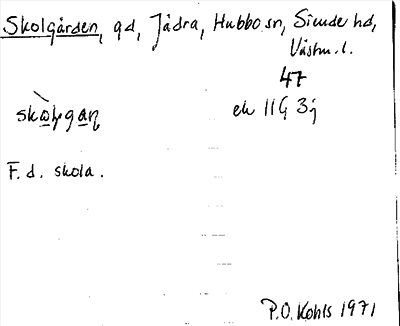 Skolgården, gd, Jädra, Hubbo sn, Siende hd,
Västm. l.
47
ek 11G 3j
F. d. skola.
P.O. Kohls 1971